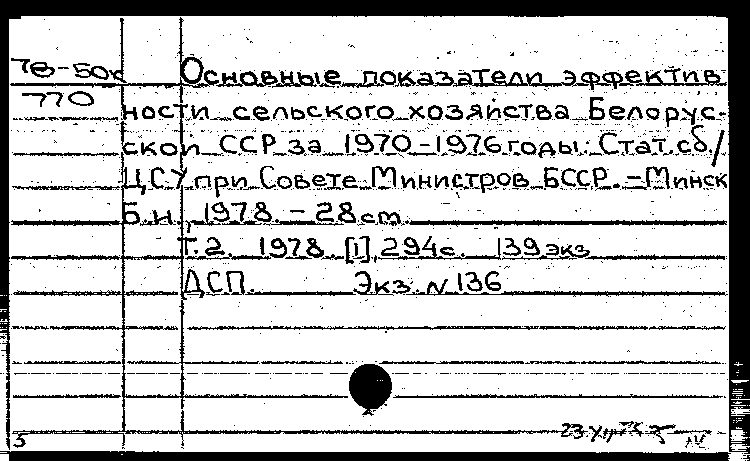 78-50к Основные показатели эффектив
770 ности сельского хозяйства Белорус-
ской ССР за 1970-1976 годы: Стат.сб./
ЦСУ при Совете Министров БССР. - Минск
Б.и., 1978. - 28 см.
Т.2. 1978. [1], 294с. 139 экз
ДСП. Экз. N 136
5